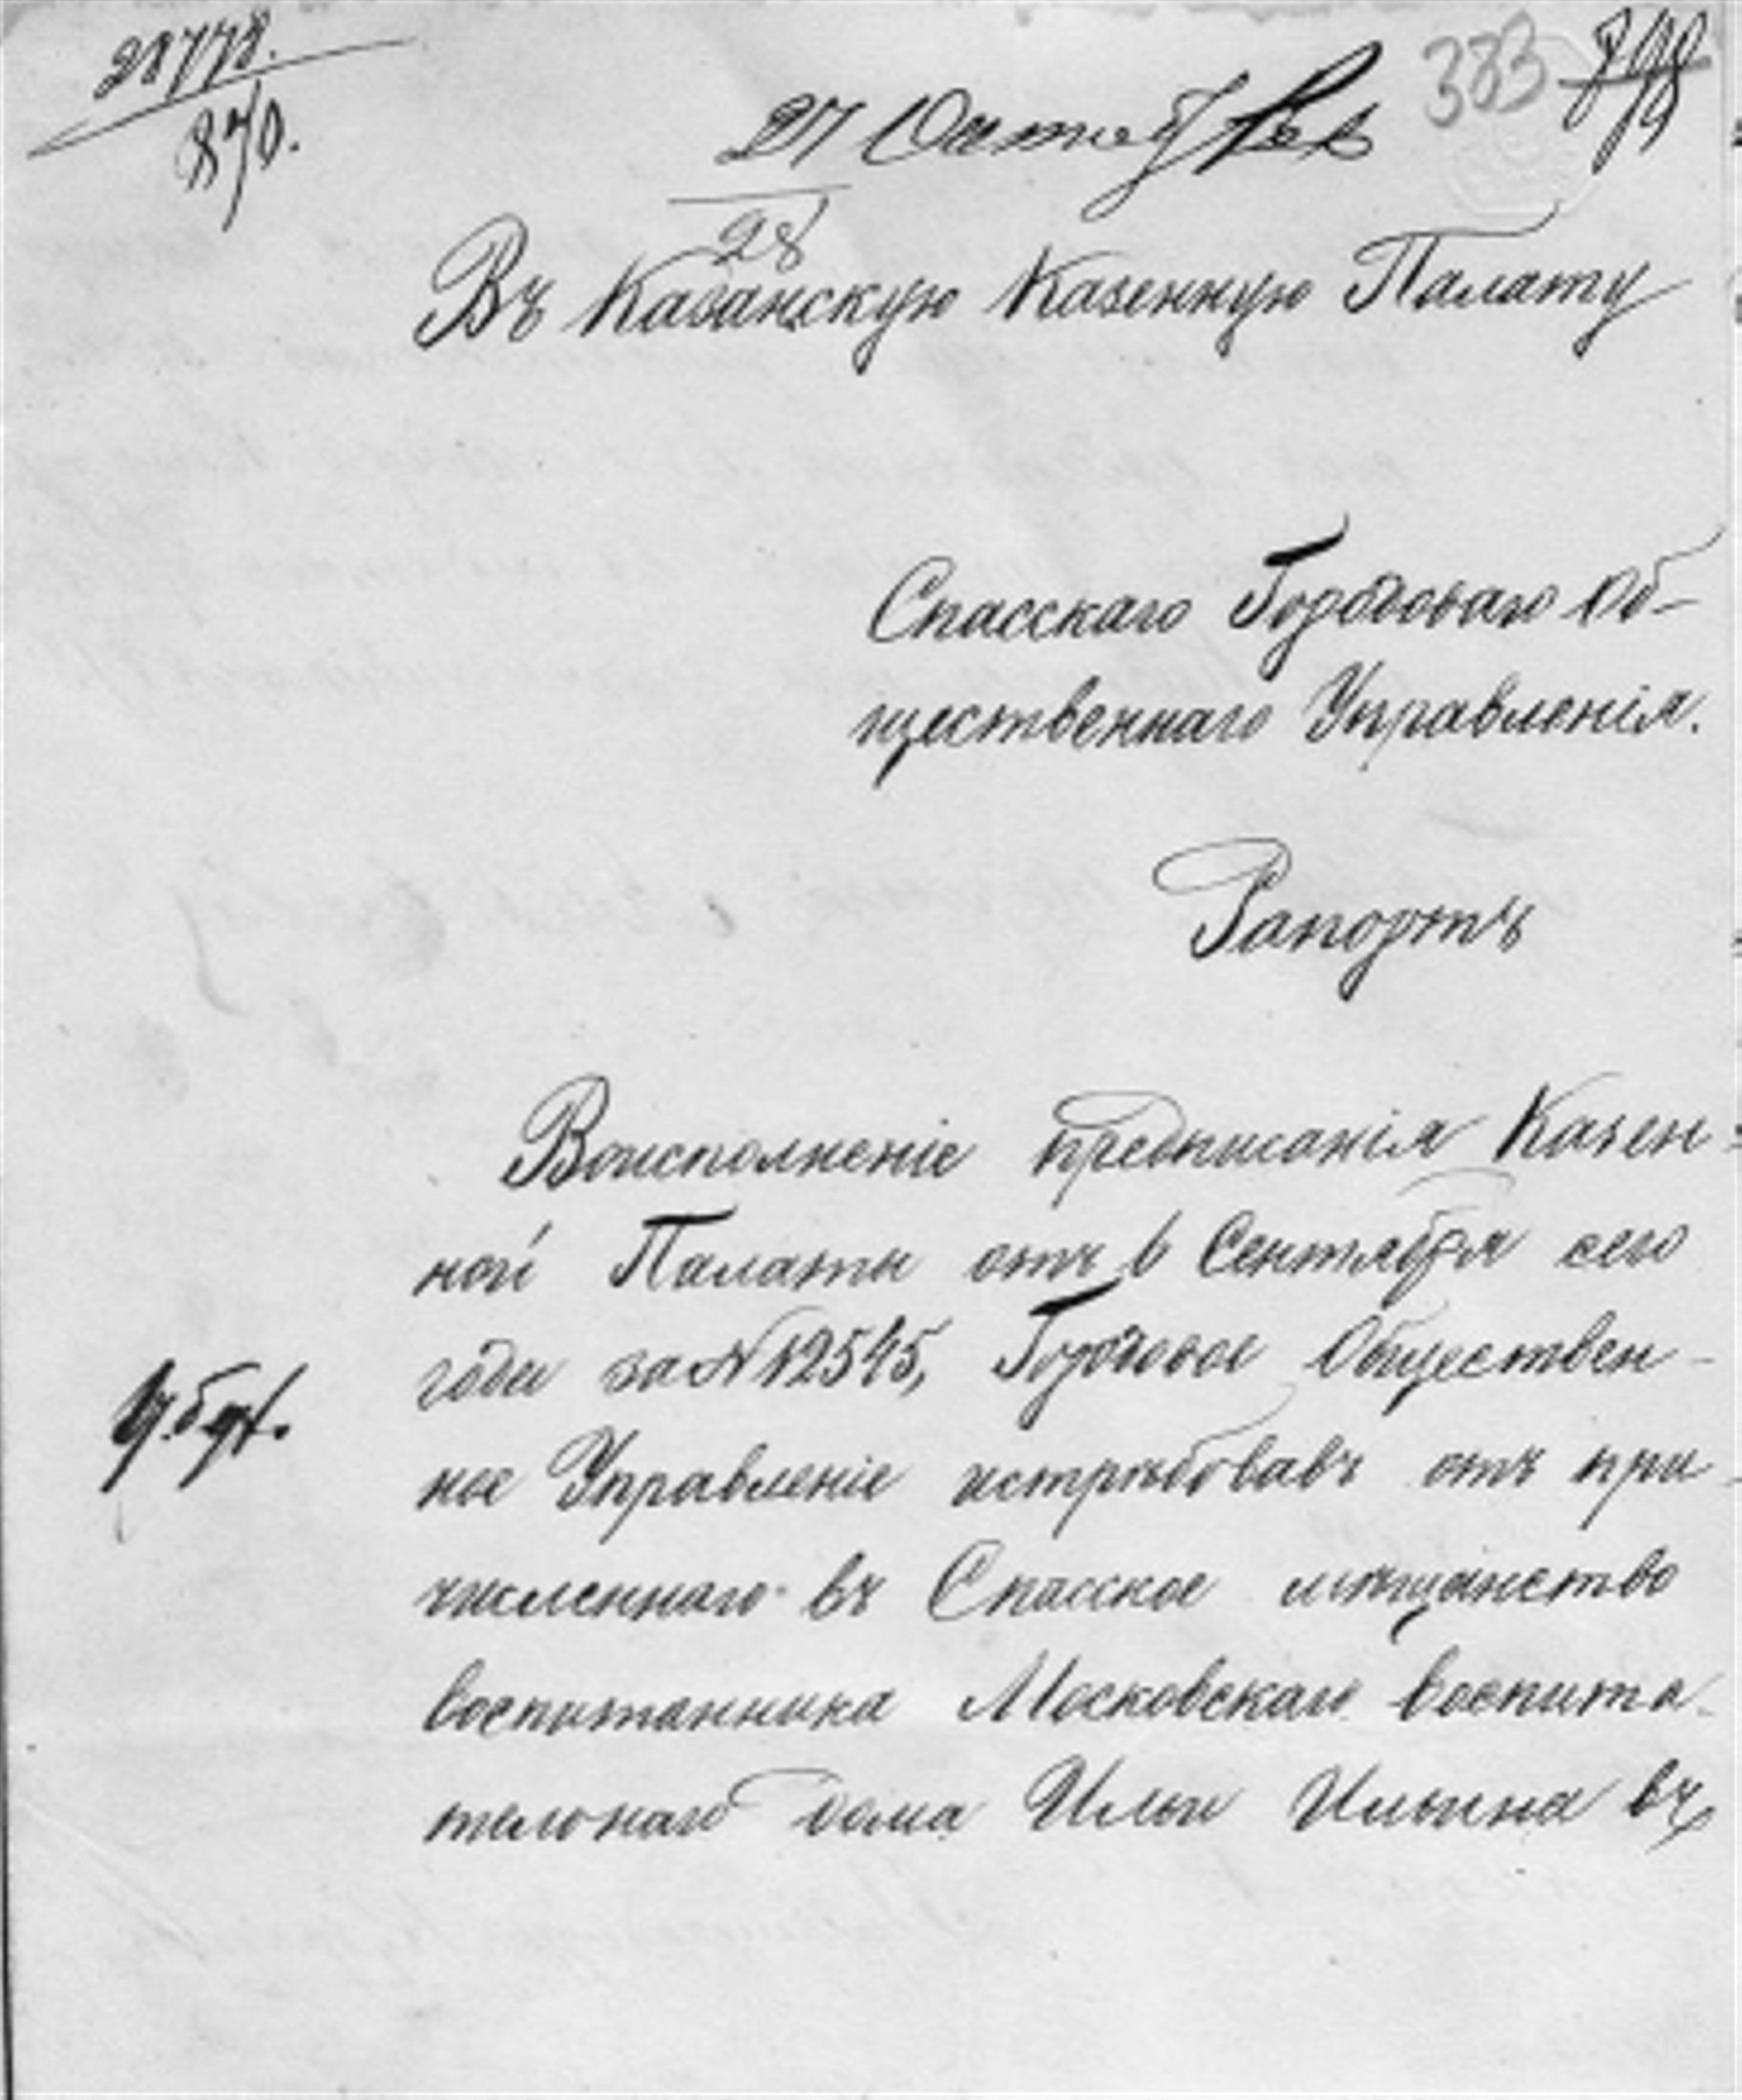 21778.
870.
383
27 Октября
28
Въ Казанскую Казенную Палату
Спасскаго Городоваго Об-
щественнаго Управленія.
Рапортъ
Воисполненіе предписанія Казен
ной Палаты отъ 6 Сентября сего
года за № 12545, Городовое Обществен-
ное Управленіе истребовавъ отъ при-
численнаго въ Спасское мѣщанство
воспитанника Московскаго воспита-
тельнаго дома Ильи Ильина въ